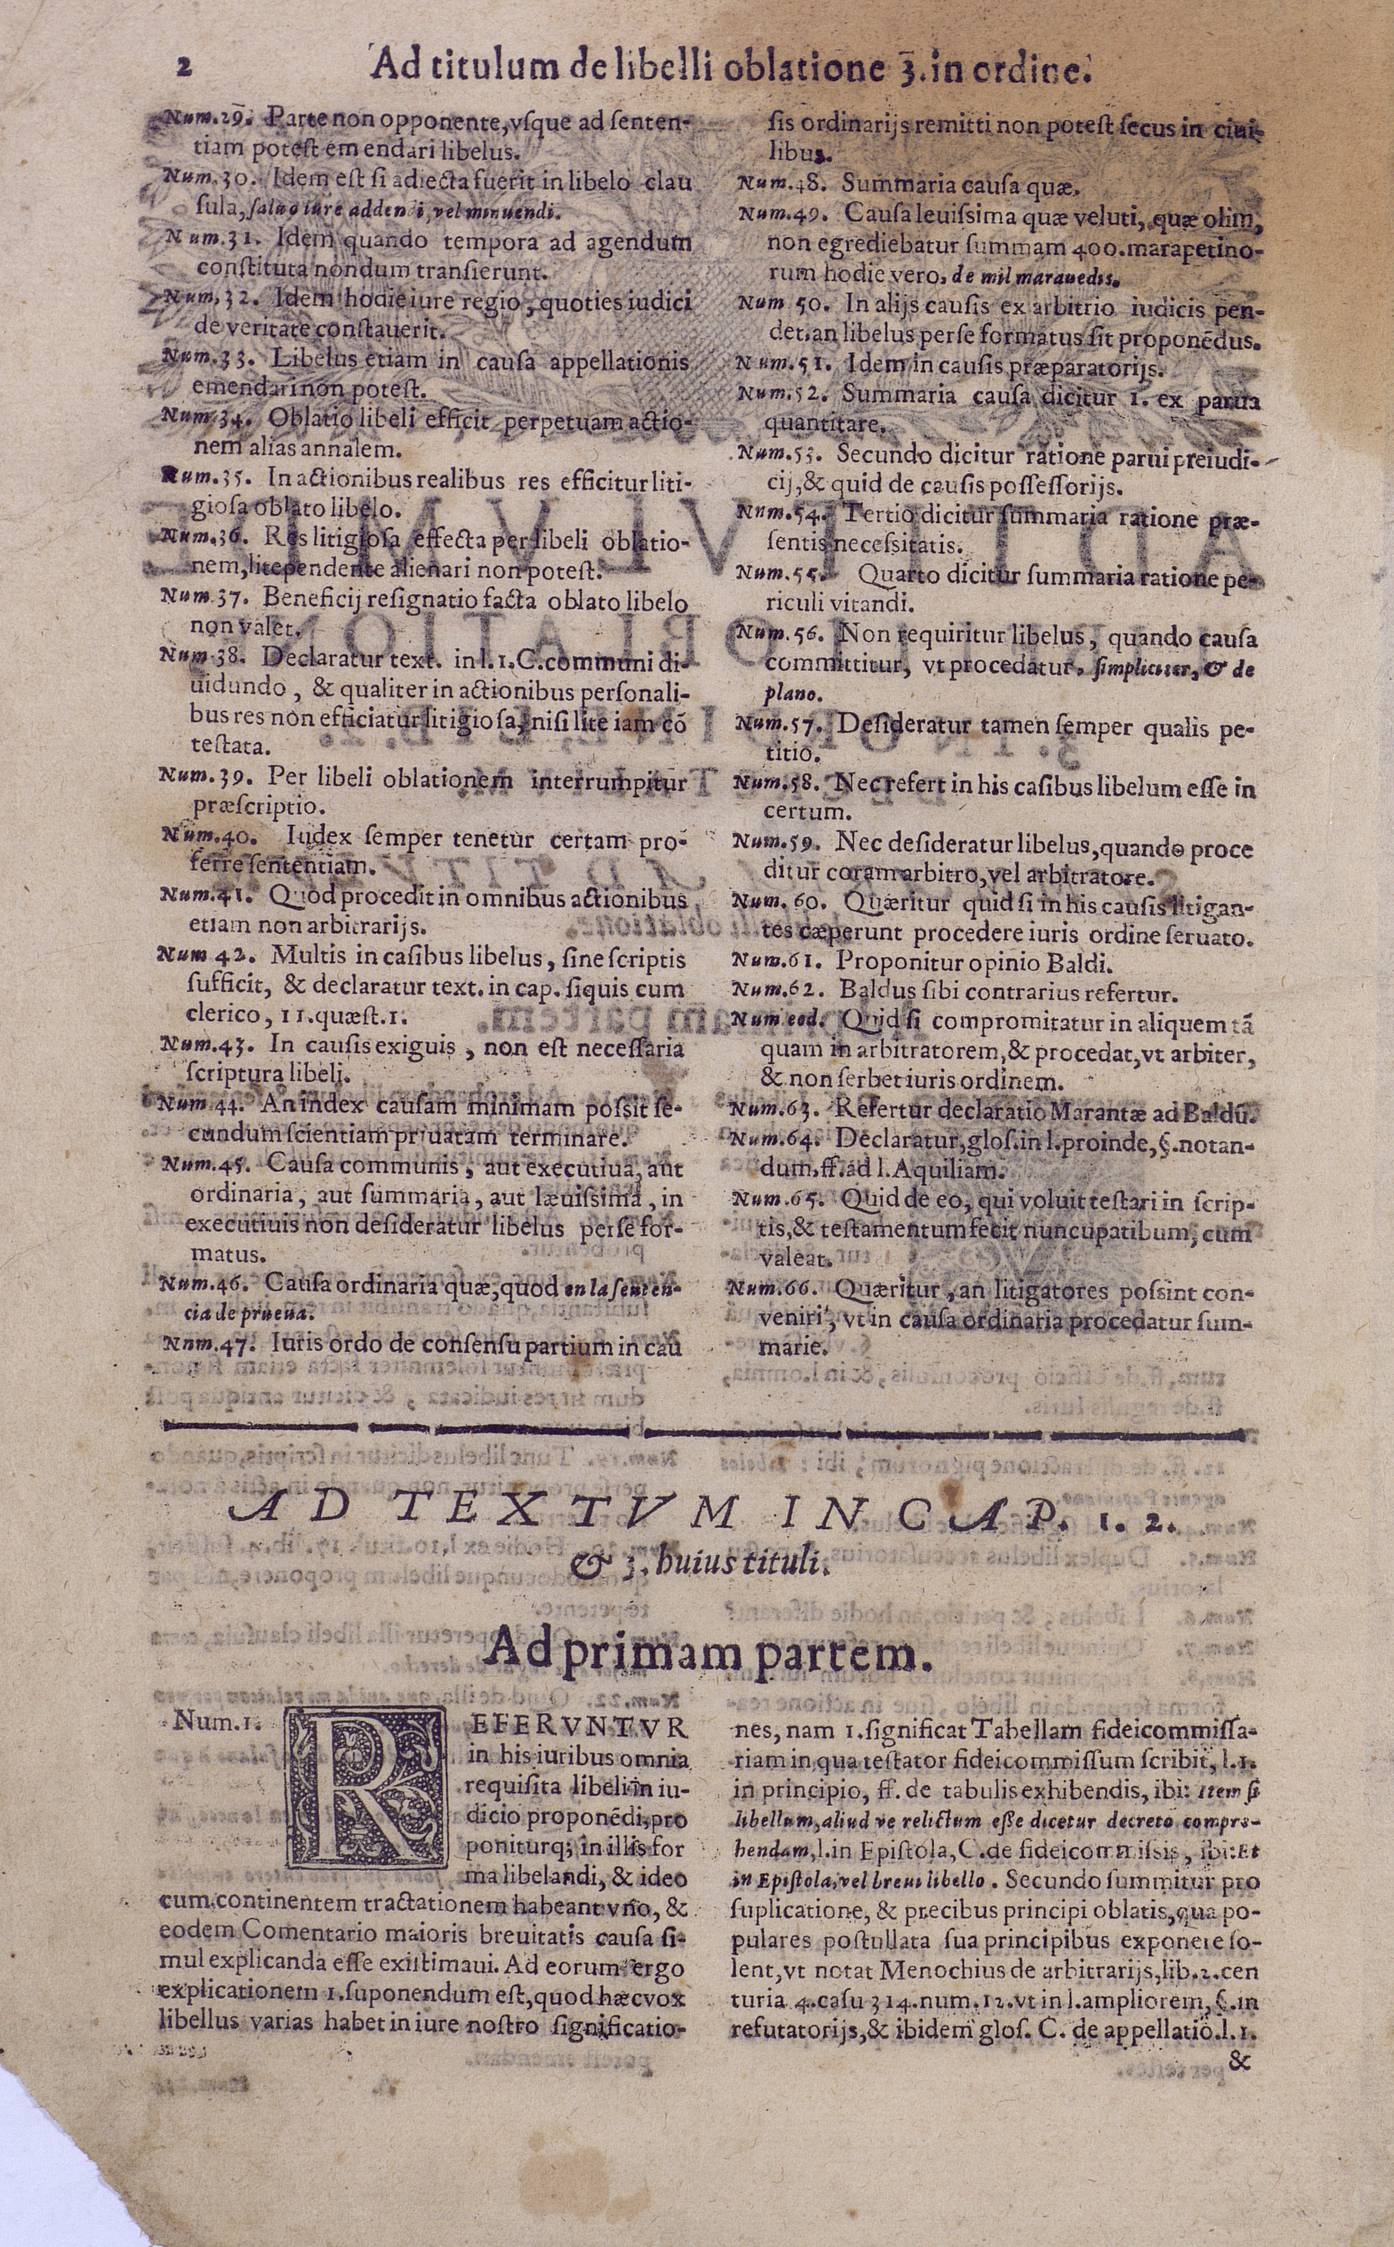 2 Ad titulum de libelli oblatione 3. in ordine.
Num.29. Parte non opponente, vſque ad ſenten-
tiam poteſt em endari libelus.
Num.30. Idem eſt ſi adiecta fuerit in libelo clau
ſula, ſaluo iure addendi, vel minuendi.
Num.31. Idem quando tempora ad agendum
conſtituta nondum tranſierunt.
Num.32. Idem hodie iure regio, quoties iudici
de veritate conſtauerit.
Num.33. Libelus etiam in cauſa appellationis
emendari non poteſt.
Num.34. Oblatio libeli efficit perpetuam actio-
nem alias annalem.
Num.35. In actionibus realibus res efficitur liti-
gioſa oblato libelo.
Num.36. Res litigioſa effecta per libeli oblatio-
nem, litependente alienari non poteſt.
Num.37. Beneficij reſignatio facta oblato libelo
non valet.
Num.38. Declaratur text. in l.1.C. communi di-
uidundo, & qualiter in actionibus perſonali-
bus res non efficiatur litigioſa, niſi lite iam cõ
teſtata.
Num.39. Per libeli oblationem interrumpitur
præſcriptio.
Num.40. Iudex ſemper tenetur certam pro-
ferre ſententiam.
Num.41. Quod procedit in omnibus actionibus
etiam non arbitrarijs.
Num 42. Multis in caſibus libelus, ſine ſcriptis
ſufficit, & declaratur text. in cap. ſiquis cum
clerico, 11.quæſt.1.
Num.43. In cauſis exiguis, non eſt neceſſaria
ſcriptura libeli.
Num.44. An index cauſam minimam poſsit ſe-
cundum ſcientiam priuatam terminare.
Num.45. Cauſa communis, aut executiua, aut
ordinaria, aut ſummaria, aut læuiſsima, in
executiuis non deſideratur libelus perſe for-
matus.
Num.46. Cauſa ordinaria quæ, quod en la ſenten-
cia de prueua.
Num.47. Iuris ordo de conſenſu partium in cau
ſis ordinarijs remitti non poteſt ſecus in ciui-
libus.
Num.48. Summaria cauſa quæ.
Num.49. Cauſa leuiſsima quæ veluti, quæ olim,
non egrediebatur ſummam 400. marapetino-
rum hodie vero, de mil marauedis.
Num 50. In alijs cauſis ex arbitrio iudicis pen-
det, an libelus perſe formatus ſit proponẽdus.
Num.51. Idem in cauſis præparatorijs.
Num.52. Summaria cauſa dicitur 1. ex parua
quantitate.
Num.53. Secundo dicitur ratione parui preiudi-
cij, & quid de cauſis poſſeſſorijs.
Num.54. Tertio dicitur ſummaria ratione præ-
ſentis neceſsitatis.
Num.55. Quarto dicitur ſummaria ratione pe-
riculi vitandi.
Num.56. Non requiritur libelus, quando cauſa
committitur, vt procedatur, ſimpliciter, & de
plano.
Num.57. Deſideratur tamen ſemper qualis pe-
titio.
Num.58. Nec refert in his caſibus libelum eſſe in
certum.
Num.59. Nec deſideratur libelus, quando proce
ditur coram arbitro, vel arbitratore.
Num.60. Quæritur quid ſi in his cauſis litigan-
tes cæperunt procedere iuris ordine ſeruato.
Num.61. Proponitur opinio Baldi.
Num.62. Baldus ſibi contrarius refertur.
Num eod. Quid ſi compromitatur in aliquem tã
quam in arbitratorem, & procedat, vt arbiter,
& non ſerbet iuris ordinem.
Num.63. Refertur declaratio Marantæ ad Baldũ.
Num.64. Declaratur, gloſ. in l. proinde, §. notan-
dum, ff. ad l. Aquiliam.
Num.65. Quid de eo, qui voluit teſtari in ſcrip-
tis, & teſtamentum fecit nuncupatibum, cum
valeat.
Num.66. Quæritur, an litigatores poſsint con-
veniri, vt in cauſa ordinaria procedatur ſum-
marie.
AD TEXTVM IN CAP. 1. 2.
& 3. huius tituli.
Ad primam partem.
Num.1. REFERVNTVR
in his iuribus omnia
requiſita libeli in iu-
dicio proponẽdi, pro
poniturq; in illis for
ma libelandi, & ideo
cum continentem tractationem habeant vño, &
eodem Comentario maioris breuitatis cauſa ſi-
mul explicanda eſſe exiſtimaui. Ad eorum ergo
explicationem 1. ſuponendum eſt, quod hæc vox
libellus varias habet in iure noſtro ſignificatio-
nes, nam 1. ſignificat Tabellam fideicommiſſa-
riam in qua teſtator fideicommiſſum ſcribit, l.1.
in principio, ff. de tabulis exhibendis, ibi: Item ſi
libellum, aliud ve relictum eſſe dicetur decreto compre-
hendam, l. in Epiſtola, C. de fideicommiſsis, ibi: Et
in Epiſtola, vel breui libello. Secundo ſummitur pro
ſuplicatione, & precibus principi oblatis, qua po-
pulares poſtullata ſua principibus exponere ſo-
lent, vt notat Menochius de arbitrarijs, lib.2. cen
turia 4. caſu 314. num.12. vt in l. ampliorem, §. in
refutatorijs, & ibidem gloſ. C. de appellatiõ. l.1.
&